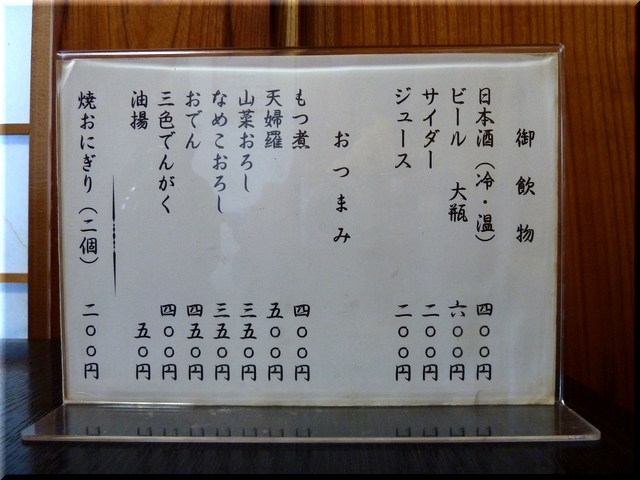 御飲物
日本酒（冷・温） 四〇〇円
ビール 大瓶 六〇〇円
サイダー 二〇〇円
ジュース 二〇〇円
おつまみ
もつ煮 四〇〇円
天婦羅 五〇〇円
山菜おろし 三五〇円
なめこおろし 三五〇円
おでん 四五〇円
三色でんがく 四〇〇円
油揚 五〇円
焼おにぎり（二個） 二〇〇円